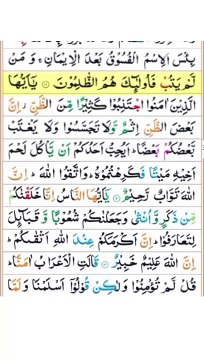 بِئْسَ الِاسْمُ الْفُسُوْقُ بَعْدَ الْاِيْمَانِ ۚ وَ مَنْ
لَّمْ يَتُبْ فَاُولٰٓئِكَ هُمُ الظّٰلِمُوْنَ ۝ يٰۤاَيُّهَا
الَّذِيْنَ اٰمَنُوا اجْتَنِبُوْا كَثِيْرًا مِّنَ الظَّنِّ ۫ اِنَّ
بَعْضَ الظَّنِّ اِثْمٌ وَّلَا تَجَسَّسُوْا وَلَا يَغْتَبْ
بَّعْضُكُمْ بَعْضًا ؕ اَيُحِبُّ اَحَدُكُمْ اَنْ يَّاْكُلَ لَحْمَ
اَخِيْهِ مَيْتًا فَكَرِهْتُمُوْهُ ؕ وَاتَّقُوا اللّٰهَ ؕ اِنَّ
اللّٰهَ تَوَّابٌ رَّحِيْمٌ ۝ يٰۤاَيُّهَا النَّاسُ اِنَّا خَلَقْنٰكُمْ
مِّنْ ذَكَرٍ وَّاُنْثٰى وَجَعَلْنٰكُمْ شُعُوْبًا وَّ قَبَآئِلَ
لِتَعَارَفُوْا ؕ اِنَّ اَكْرَمَكُمْ عِنْدَ اللّٰهِ اَتْقٰىكُمْ ؕ
اِنَّ اللّٰهَ عَلِيْمٌ خَبِيْرٌ ۝ قَالَتِ الْاَعْرَابُ اٰمَنَّا ؕ
قُلْ لَّمْ تُؤْمِنُوْا وَلٰكِنْ قُوْلُوْۤا اَسْلَمْنَا وَلَمَّا